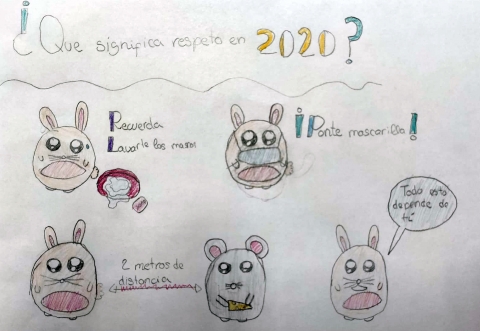 ¿Que significa respeto en 2020?
Recuerda
Lavarte las manos
¡Ponte mascarilla!
2 metros de
distancia
Todo esto
depende de
tí